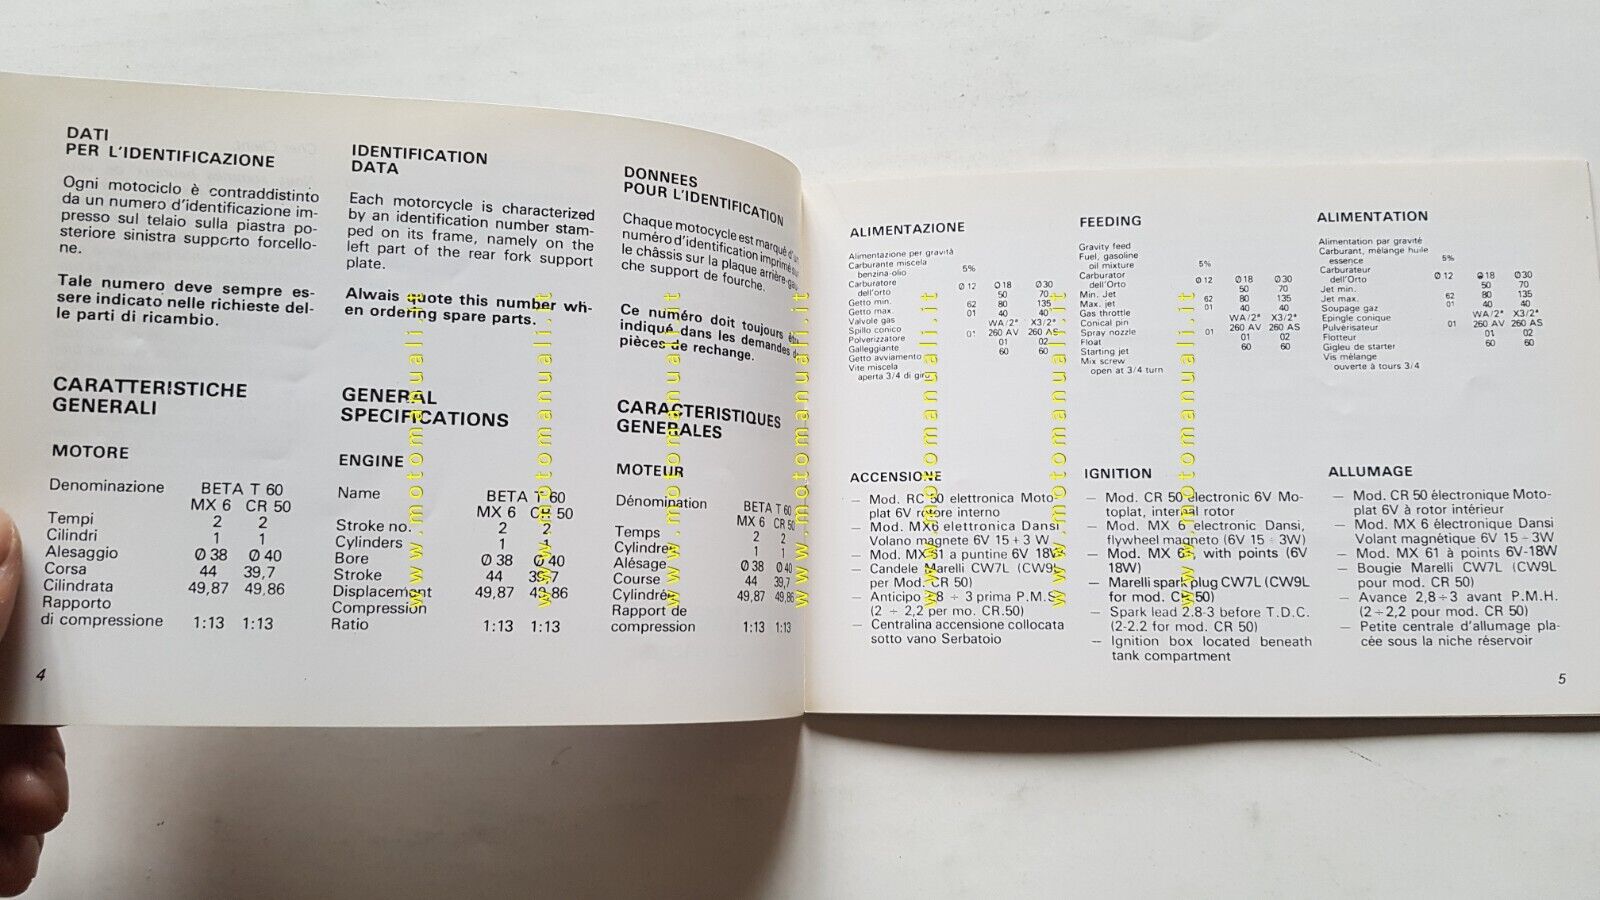 DATI
PER L'IDENTIFICAZIONE
Ogni motociclo è contraddistinto
da un numero d'identificazione im-
presso sul telaio sulla piastra po-
steriore sinistra supporto forcello-
ne.
Tale numero deve sempre es-
sere indicato nelle richieste del-
le parti di ricambio.
CARATTERISTICHE
GENERALI
MOTORE
Denominazione BETA T 60
MX 6 CR 50
Tempi 2 2
Cilindri 1 1
Alesaggio Ø 38 Ø 40
Corsa 44 39,7
Cilindrata 49,87 49,86
Rapporto
di compressione 1:13 1:13
4
IDENTIFICATION
DATA
Each motorcycle is characterized
by an identification number stam-
ped on its frame, namely on the
left part of the rear fork support
plate.
Alwais quote this number wh-
en ordering spare parts.
GENERAL
SPECIFICATIONS
ENGINE
Name BETA T 60
MX 6 CR 50
Stroke no. 2 2
Cylinders 1 1
Bore Ø 38 Ø 40
Stroke 44 39,7
Displacement 49,87 49,86
Compression
Ratio 1:13 1:13
DONNEES
POUR L'IDENTIFICATION
Chaque motocycle est marqué d'un
numéro d'identification imprimé sur
le châssis sur la plaque arrière-gau-
che support de fourche.
Ce numéro doit toujours être
indiqué dans les demandes
pièces de rechange.
CARACTERISTIQUES
GENERALES
MOTEUR
Dénomination BETA T 60
MX 6 CR 50
Temps 2 2
Cylindre 1 1
Alésage Ø 38 Ø 40
Course 44 39,7
Cylindrée 49,87 49,86
Rapport de
compression 1:13 1:13
ALIMENTAZIONE
Alimentazione per gravità
Carburante miscela
benzina-olio 5%
Carburatore
dell'orto Ø 12 Ø 18 Ø 30
Getto min. 50 70
Getto max. 62 80 135
Valvole gas 01 40 40
Spillo conico WA/2ª X3/2ª
Polverizzatore 01 260 AV 260 AS
Galleggiante 01 02
Getto avviamento 60 60
Vite miscela
aperta 3/4 di giro
ACCENSIONE
— Mod. RC 50 elettronica Moto-
plat 6V rotore interno
— Mod. MX6 elettronica Dansi
Volano magnete 6V 15 + 3 W
— Mod. MX 61 a puntine 6V 18W
— Candele Marelli CW7L (CW9L
per Mod. CR 50)
— Anticipo 2,8 ÷ 3 prima P.M.S.
(2 ÷ 2,2 per mo. CR.50)
— Centralina accensione collocata
sotto vano Serbatoio
FEEDING
Gravity feed
Fuel, gasoline
oil mixture 5%
Carburator
dell'Orto Ø 12 Ø 18 Ø 30
Min. Jet 50 70
Max. jet 62 80 135
Gas throttle 01 40 40
Conical pin WA/2ª X3/2ª
Spray nozzle 01 260 AV 260 AS
Float 01 02
Starting jet 60 60
Mix screw
open at 3/4 turn
IGNITION
— Mod. CR 50 electronic 6V Mo-
toplat, internal rotor
— Mod. MX 6 electronic Dansi,
flywheel magneto (6V 15 ÷ 3W)
— Mod. MX 61, with points (6V
18W)
— Marelli spark plug CW7L (CW9L
for mod. CR 50)
— Spark lead 2.8-3 before T.D.C.
(2-2.2 for mod. CR 50)
— Ignition box located beneath
tank compartment
ALIMENTATION
Alimentation par gravité
Carburant, mélange huile
essence 5%
Carburateur
dell'Orto Ø 12 Ø 18 Ø 30
Jet min. 50 70
Jet max. 62 80 135
Soupage gaz 01 40 40
Epingle conique WA/2ª X3/2ª
Pulvérisateur 01 260 AV 260 AS
Flotteur 01 02
Gigleu de starter 60 60
Vis mélange
ouverte à tours 3/4
ALLUMAGE
— Mod. CR 50 électronique Moto-
plat 6V à rotor intérieur
— Mod. MX 6 électronique Dansi
Volant magnétique 6V 15 ÷ 3W
— Mod. MX 61 à points 6V-18W
— Bougie Marelli CW7L (CW9L
pour mod. CR 50)
— Avance 2,8 ÷ 3 avant P.M.H.
(2 ÷ 2,2 pour mod. CR 50)
— Petite centrale d'allumage pla-
cée sous la niche réservoir
5
www.motomanuali.it
www.motomanuali.it
www.motomanuali.it
www.motomanuali.it
www.motomanuali.it
www.motomanuali.it
www.motomanuali.it